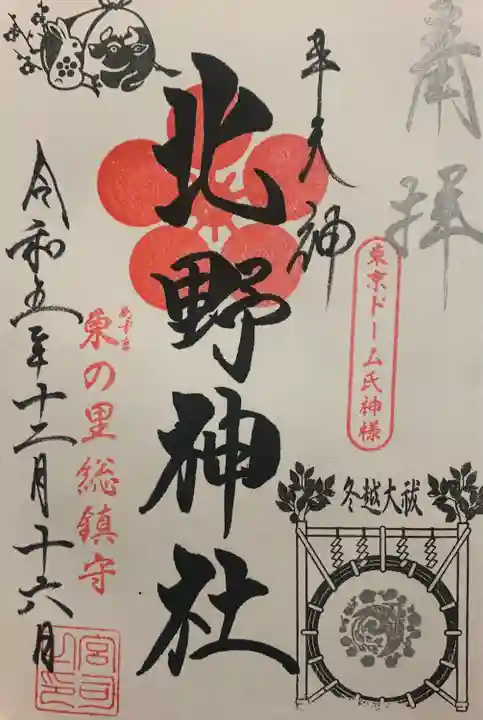 奉拝
東京ドーム氏神様
牛天神
北野神社
あずま
東の里総鎮守
令和五年十二月十六日
冬越大祓
宮司之印